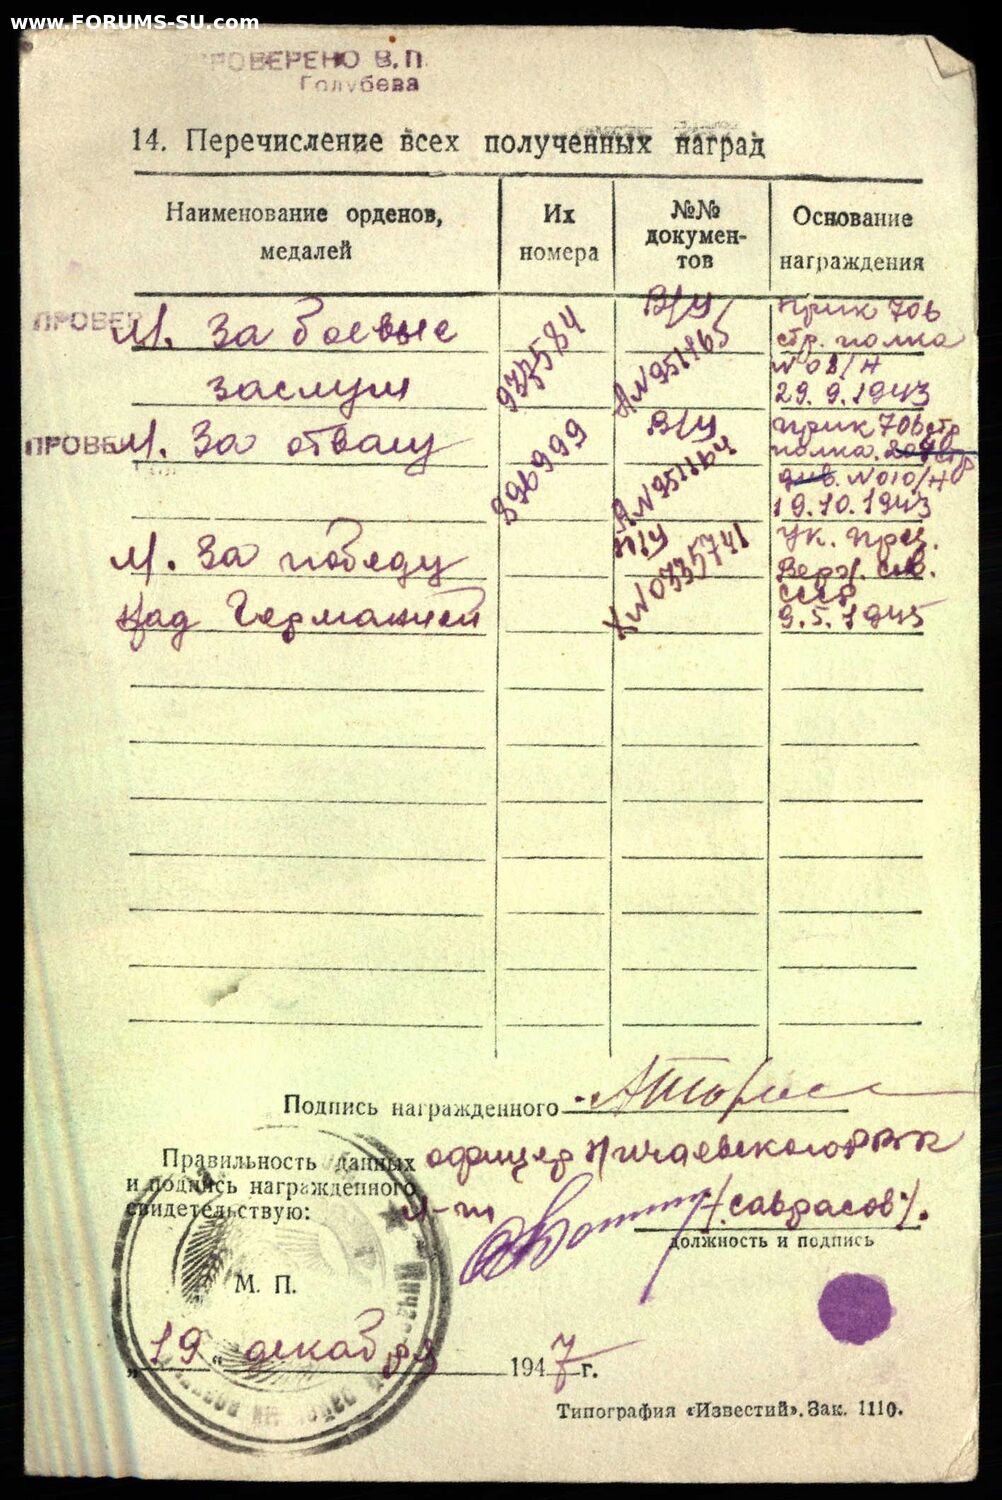 www.FORUMS-SU.com
ПРОВЕРЕНО В.П.
Голубева
14. Перечисление всех полученных наград
Наименование орденов, медалей
Их номера
№№ докумен-тов
Основание награждения
ПРОВЕР
М. За боевые
заслуги
933584
В/у
А№951865
Прик 706
стр. полка
№08/Н
29.9.1943
ПРОВЕ
М. За отвагу
896999
В/у
А№951864
Прик 706 стр
полка. 204 стр
див. №010/Н
19.10.1943
М. За победу
над Германией
П/у
Х№0335741
Ук. през.
Верх. сов.
СССР
9.5.1945
Подпись награжденного
Правильность данных
и подпись награжденного
свидетельствую:
офицер Ичаевского РВК
л-т
/Саврасов/.
должность и подпись
М. П.
„19“ декабря 1947 г.
Типография «Известий». Зак. 1110.